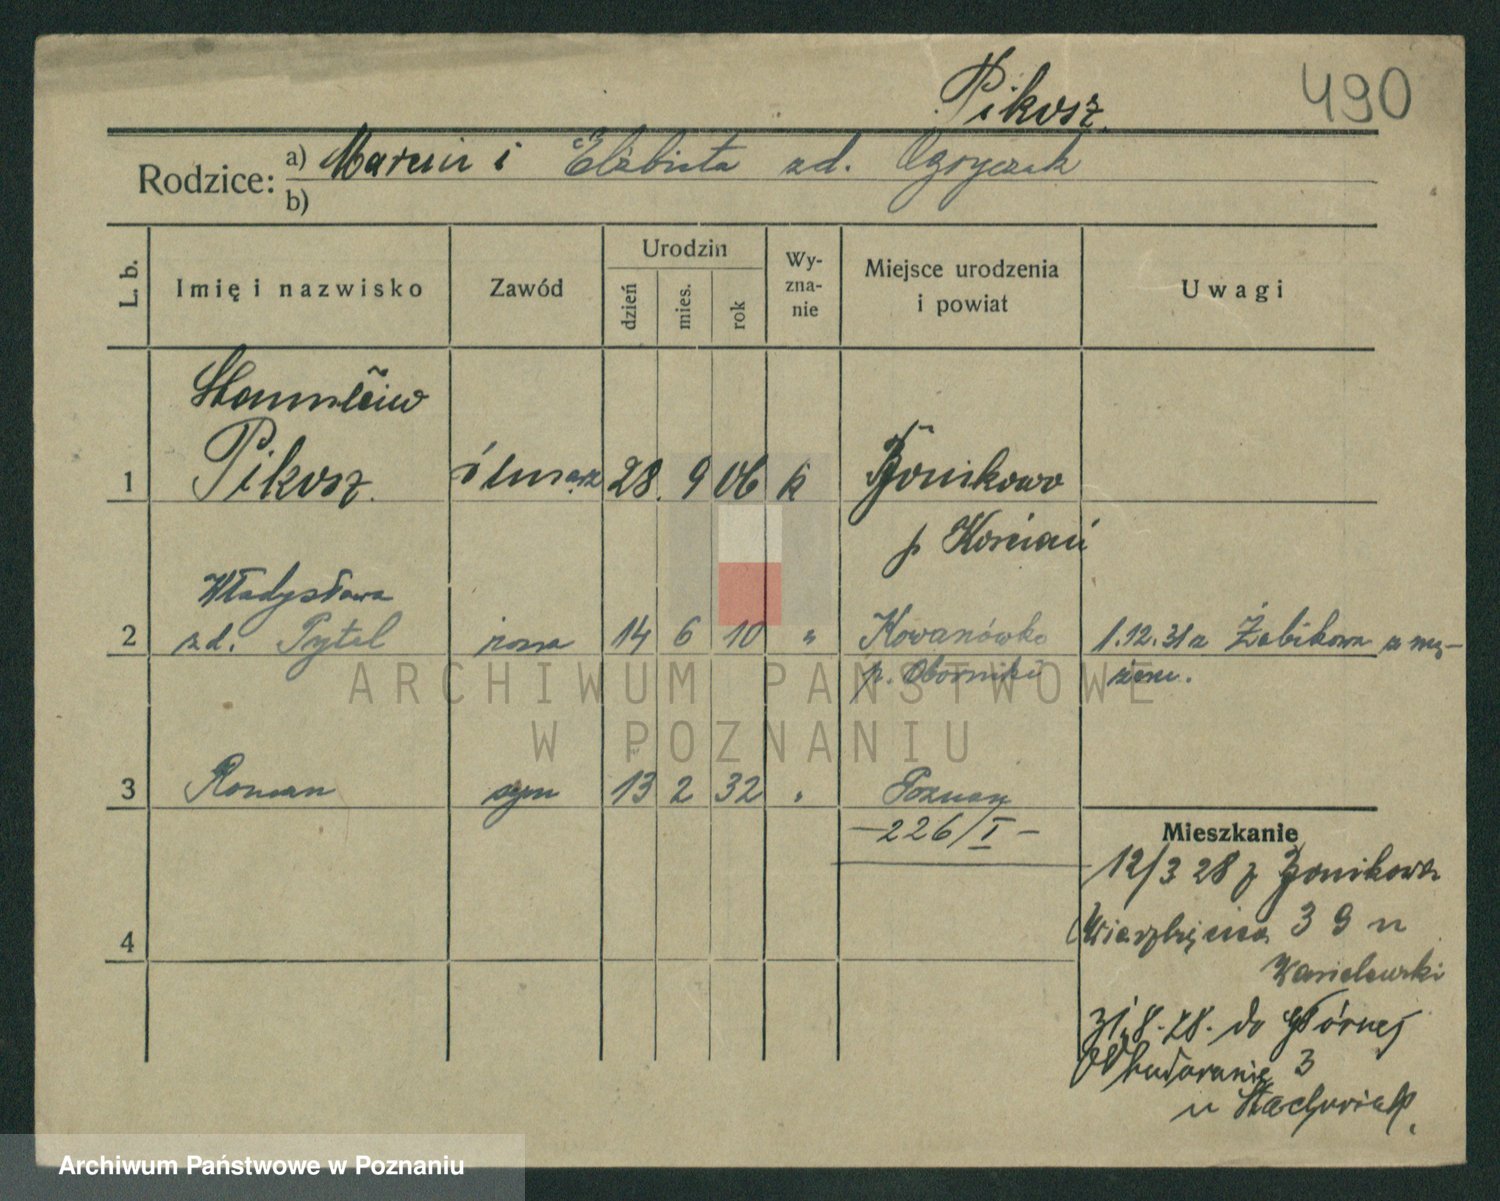 Pikosz
490
Rodzice: a) Marcin i Elżbieta zd. Ogryczak
b)
L. b.
Imię i nazwisko
Zawód
Urodzin
dzień
mies.
rok
Wy-
zna-
nie
Miejsce urodzenia
i powiat
Uwagi
Stanisław
1 Pikosz ślusarz 28. 9 06 k Bonikowo
p Kościań
Władysława
2 zd. Pytel żona 14 6 10 " Kowanówko 1.12.31 z Żabikowa z mę-
p. Oborniki żem.
3 Roman syn 13 2 32 " Poznań
- 226/I -
4
Mieszkanie
12/3 28 z Bonikowa
Wierzbięcice 39 u
Wasielewski
31.8.28. do Górnej
3
u
ARCHIWUM PAŃSTWOWE
W POZNANIU
Archiwum Państwowe w Poznaniu